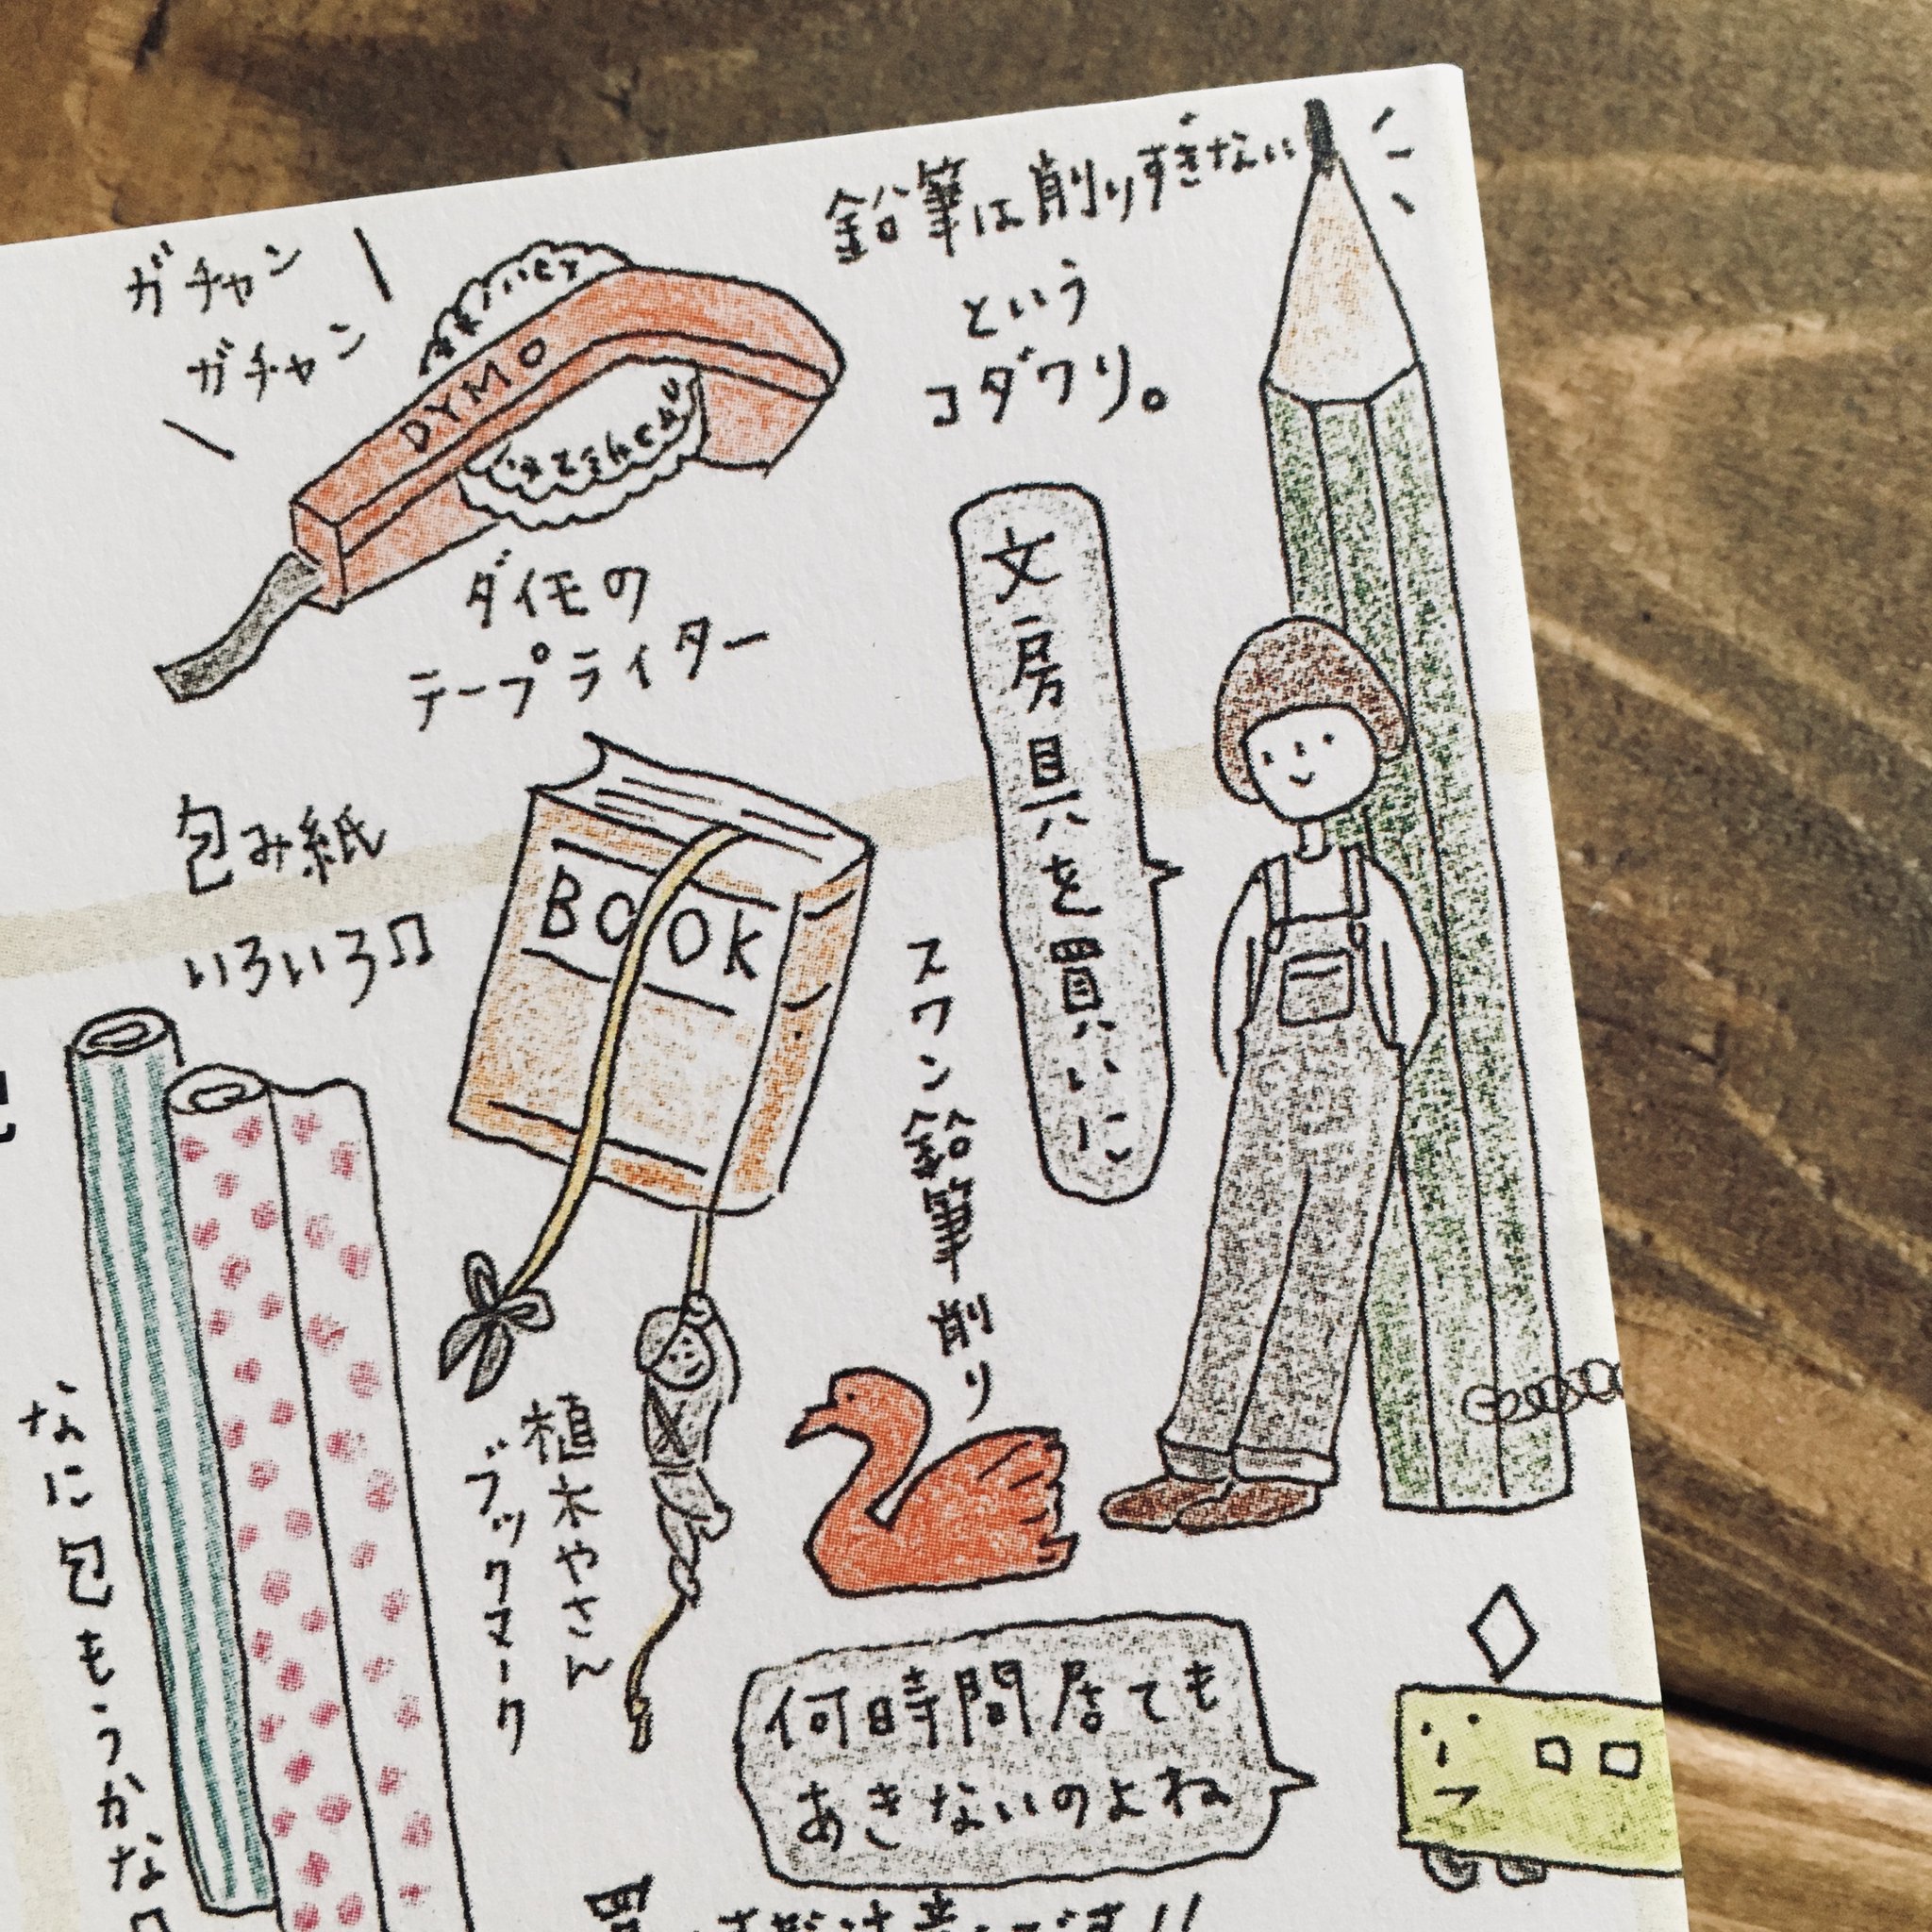 鉛筆は削りすぎない
という
コダワリ。
ガチャン
ガチャン
DYMO
ダイモの
テープライター
文房具を買いに
包み紙
いろいろ♫
BOOK
スワン鉛筆削り
植木やさん
ブックマーク
なに包もうかな♫
何時間居ても
あきないのよね